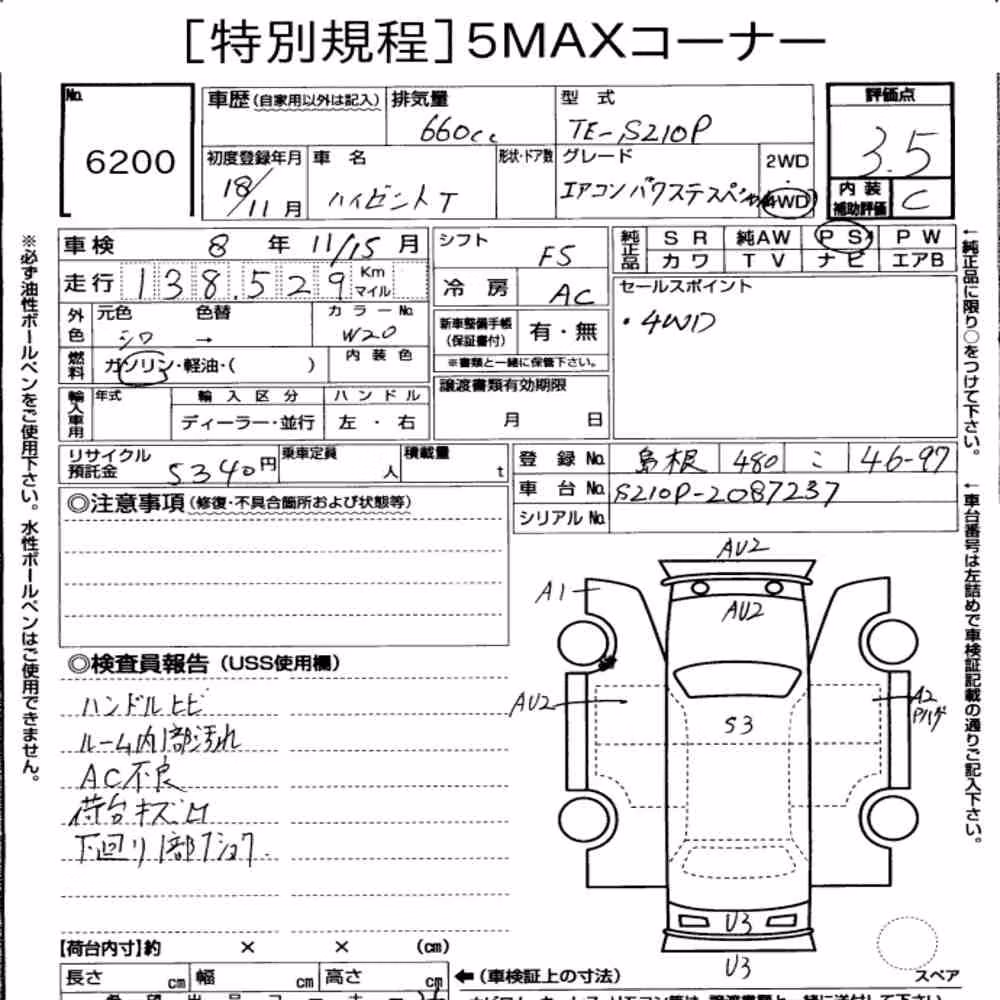 [特別規程]5MAXコーナー
No. 6200
車歴(自家用以外は記入) 排気量 660cc
型式 TE-S210P
評価点 3.5
内装補助評価 C
初度登録年月 18/11月
車名 ハイゼットT
形状・ドア数
グレード エアコンパワステスペシャル
2WD・4WD
車検 8年11/15月
走行 138,529 Km マイル
外色 元色 シロ 色替 →
カラーNo. W20
燃料 ガソリン・軽油・( )
内装色
輸入車用 年式 輸入区分 ハンドル
ディーラー・並行 左・右
シフト F5
冷房 AC
新車整備手帳(保証書付) 有・無
※書類と一緒に保管下さい。
譲渡書類有効期限
月 日
純正品 SR 純AW PS PW
カワ TV ナビ エアB
セールスポイント
・4WD
リサイクル預託金 5340円
乗車定員 人
積載量 t
登録No. 島根 480 こ 46-97
車台No. S210P-2087237
シリアルNo.
◎注意事項(修復・不具合箇所および状態等)
◎検査員報告(USS使用欄)
ハンドルヒビ
ルーム内1部汚れ
AC不良
荷台キズ凹
下回り1部フショク.
AU2
A1
AU2
AU2
A2
Pハゲ
S3
U3
U3
スペア
【荷台内寸】約 × × (cm)
長さ cm 幅 cm 高さ cm
←(車検証上の寸法)
※必ず油性ボールペンをご使用下さい。水性ボールペンはご使用できません。
←純正品に限り○をつけて下さい。
←車台番号は左詰めで車検証記載の通りご記入下さい。